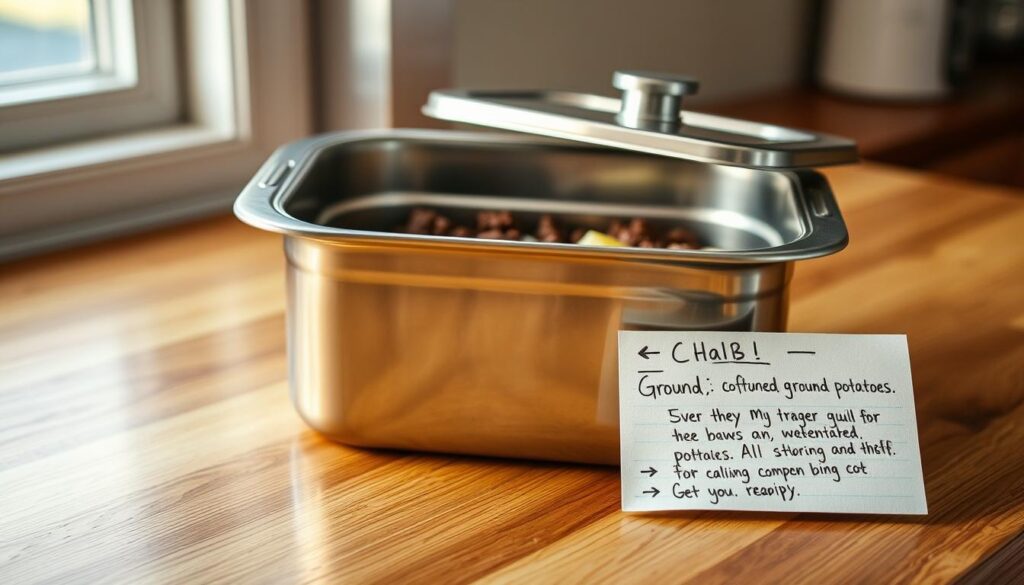 ← CHalB! —
Ground,: coftuned ground potatoes.
5ver they My trager guill for
thee baws an, wetentated.
pottales. All sthoring and thiff.
→ for calling compen bing cot
→ Get you. reapipy.